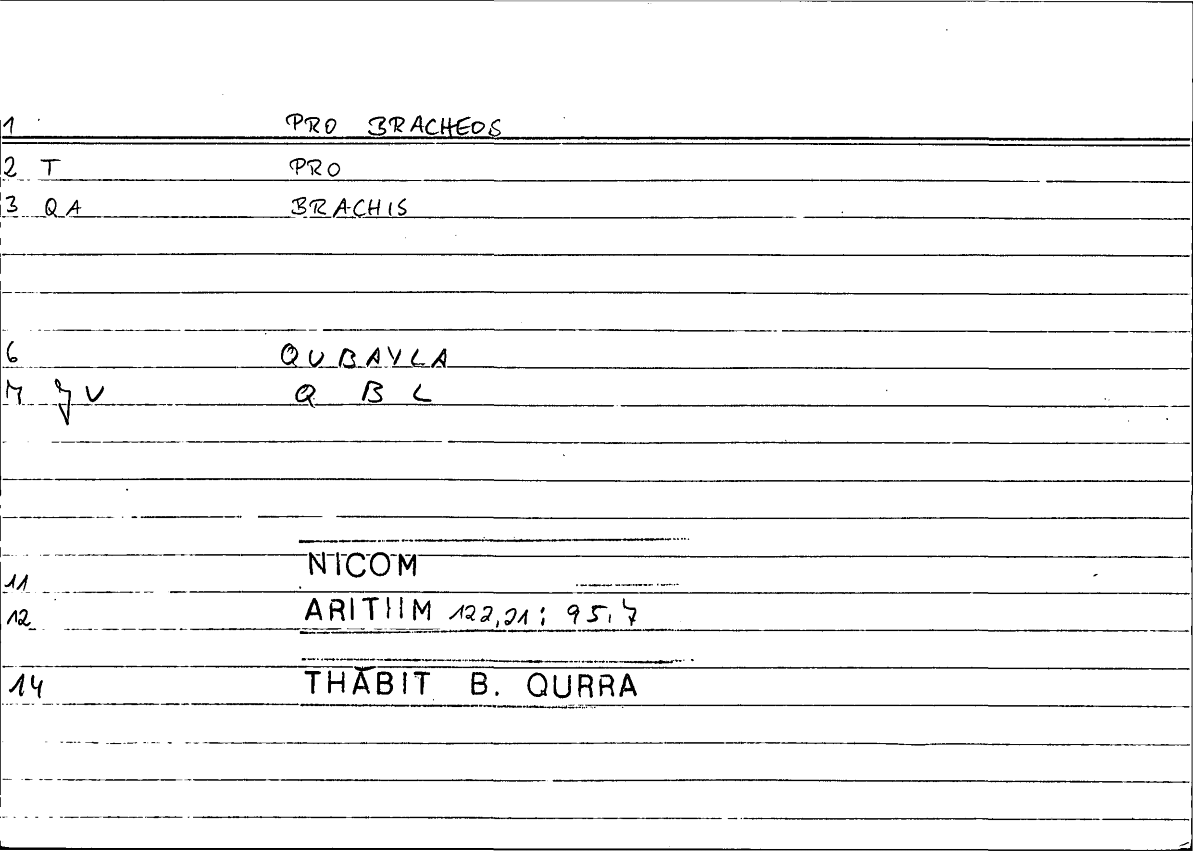 1 PRO BRACHEOS
2 T PRO
3 QA BRACHIS
6 QUBAYLA
7 V Q B L
NICOM
11
12 ARITHM 122,21; 95,7
14 THĀBIT B. QURRA